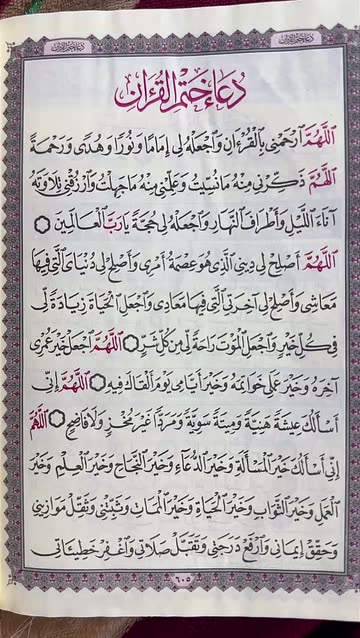 دعاء ختم القرآن
دعاء ختم القرآن
دُعَاءُ خَتْمِ الْقُرْءَانِ
اَللَّهُمَّ ارْحَمْنِي بِالْقُرْءَانِ وَاجْعَلْهُ لِي إِمَامًا وَنُورًا وَهُدًى وَرَحْمَةً
اَللَّهُمَّ ذَكِّرْنِي مِنْهُ مَا نُسِّيتُ وَعَلِّمْنِي مِنْهُ مَا جَهِلْتُ وَارْزُقْنِي تِلَاوَتَهُ
آنَاءَ اللَّيْلِ وَأَطْرَافَ النَّهَارِ وَاجْعَلْهُ لِي حُجَّةً يَا رَبَّ الْعَالَمِينَ ۝
اَللَّهُمَّ أَصْلِحْ لِي دِينِي الَّذِي هُوَ عِصْمَةُ أَمْرِي وَأَصْلِحْ لِي دُنْيَايَ الَّتِي فِيهَا
مَعَاشِي وَأَصْلِحْ لِي آخِرَتِي الَّتِي فِيهَا مَعَادِي وَاجْعَلِ الْحَيَاةَ زِيَادَةً لِي
فِي كُلِّ خَيْرٍ وَاجْعَلِ الْمَوْتَ رَاحَةً لِي مِنْ كُلِّ شَرٍّ ۝ اَللَّهُمَّ اجْعَلْ خَيْرَ عُمْرِي
آخِرَهُ وَخَيْرَ عَمَلِي خَوَاتِمَهُ وَخَيْرَ أَيَّامِي يَوْمَ أَلْقَاكَ فِيهِ ۝ اَللَّهُمَّ إِنِّي
أَسْأَلُكَ عِيشَةً هَنِيَّةً وَمِيتَةً سَوِيَّةً وَمَرَدًّا غَيْرَ مُخْزٍ وَلَا فَاضِحٍ ۝ اَللَّهُمَّ
إِنِّي أَسْأَلُكَ خَيْرَ الْمَسْأَلَةِ وَخَيْرَ الدُّعَاءِ وَخَيْرَ النَّجَاحِ وَخَيْرَ الْعِلْمِ وَخَيْرَ
الْعَمَلِ وَخَيْرَ الثَّوَابِ وَخَيْرَ الْحَيَاةِ وَخَيْرَ الْمَمَاتِ وَثَبِّتْنِي وَثَقِّلْ مَوَازِينِي
وَحَقِّقْ إِيمَانِي وَارْفَعْ دَرَجَتِي وَتَقَبَّلْ صَلَاتِي وَاغْفِرْ خَطِيئَاتِي
٦٠٥